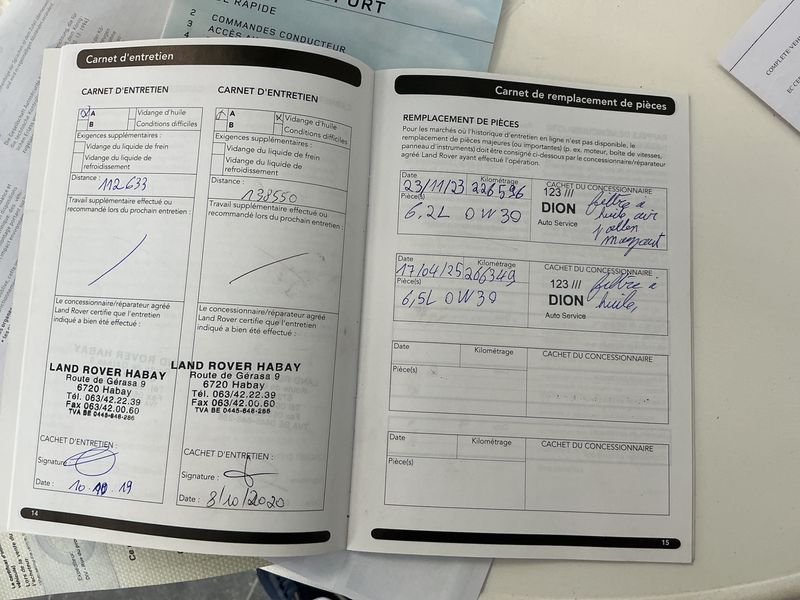 SE RAPIDE
PORT
2 COMMANDES CONDUCTEUR
3
4
COMPLETE VEH
EC CE
Carnet d'entretien
CARNET D'ENTRETIEN
A Vidange d'huile
B Conditions difficiles
Exigences supplémentaires :
Vidange du liquide de frein
Vidange du liquide de
refroidissement
Distance : 112633
Travail supplémentaire effectué ou
recommandé lors du prochain entretien :
Le concessionnaire/réparateur agréé
Land Rover certifie que l'entretien
indiqué a bien été effectué :
LAND ROVER HABAY
Route de Gérasa 9
6720 Habay
Tél. 063/42.22.39
Fax 063/42.00.60
TVA BE 0445-648-286
CACHET D'ENTRETIEN :
Signature
Date : 10 . 10 . 19
14
CARNET D'ENTRETIEN
A Vidange d'huile
B Conditions difficiles
Exigences supplémentaires :
Vidange du liquide de frein
Vidange du liquide de
refroidissement
Distance : 138550
Travail supplémentaire effectué ou
recommandé lors du prochain entretien :
Le concessionnaire/réparateur agréé
Land Rover certifie que l'entretien
indiqué a bien été effectué :
LAND ROVER HABAY
Route de Gérasa 9
6720 Habay
Tél. 063/42.22.39
Fax 063/42.00.60
TVA BE 0445-648-286
CACHET D'ENTRETIEN :
Signature :
Date : 8/10/2020
Carnet de remplacement de pièces
REMPLACEMENT DE PIÈCES
Pour les marchés où l'historique d'entretien en ligne n'est pas disponible, le
remplacement de pièces majeures (ou importantes) (p. ex. moteur, boîte de vitesses,
panneau d'instruments) doit être consigné ci-dessous par le concessionnaire/réparateur
agréé Land Rover ayant effectué l'opération.
Date Kilométrage CACHET DU CONCESSIONNAIRE
23/11/23 226596
Pièce(s)
6,2L 0W30
123 ///
DION
Auto Service
filtre à
huile, air
pollen
Date Kilométrage CACHET DU CONCESSIONNAIRE
17/04/25 266349
Pièce(s)
6,5L 0W30
123 ///
DION
Auto Service
filtre à
huile,
Date Kilométrage CACHET DU CONCESSIONNAIRE
Pièce(s)
Date Kilométrage CACHET DU CONCESSIONNAIRE
Pièce(s)
15